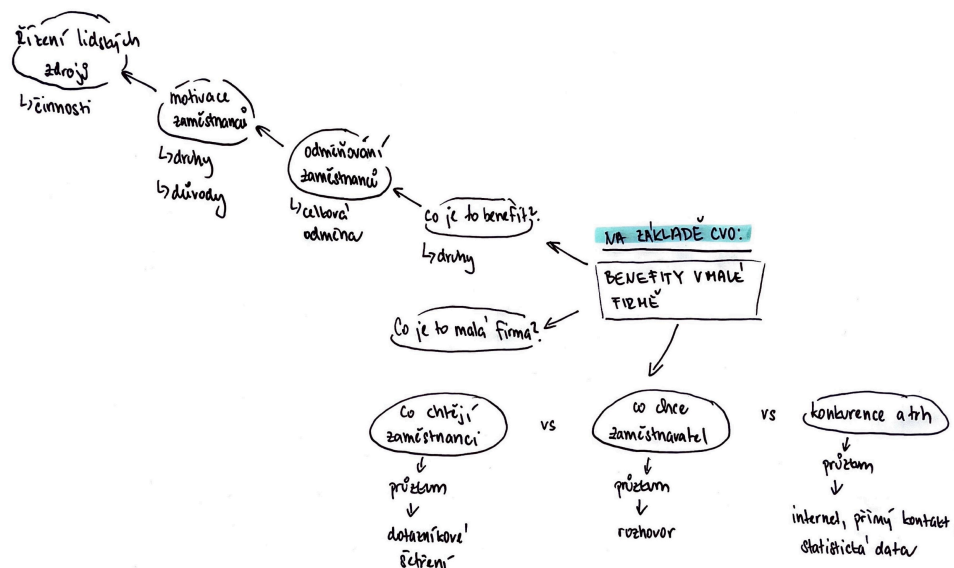 Řízení lidských
zdrojů
↳ činnosti
motivace
zaměstnanců
↳ druhy
↳ důvody
odměňování
zaměstnanců
↳ celková
odměna
Co je to benefit?
↳ druhy
NA ZÁKLADĚ CVO:
BENEFITY V MALÉ
FIRMĚ
Co je to malá firma?
Co chtějí
zaměstnanci
vs
co chce
zaměstnavatel
vs
konkurence a trh
průzkum
dotazníkové
šetření
průzkum
rozhovor
průzkum
internet, přímý kontakt
statistická data